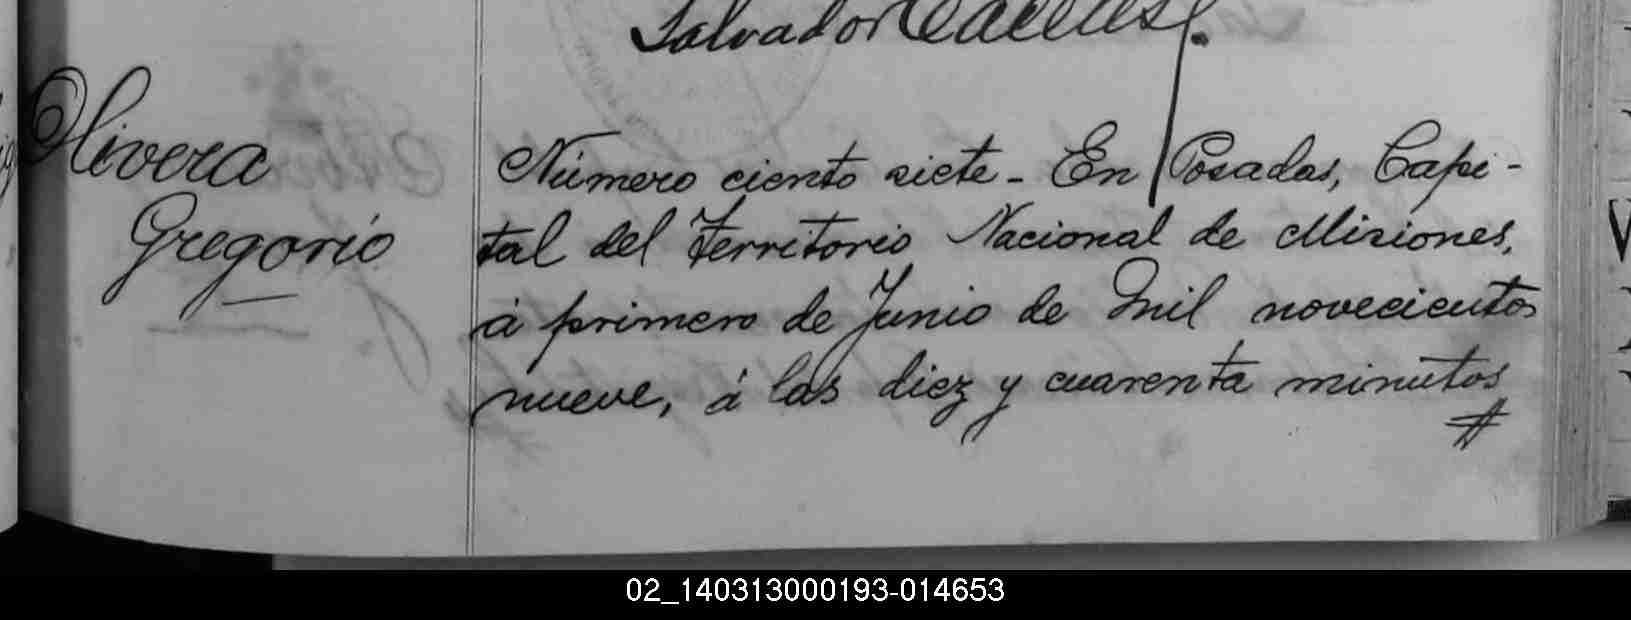 Salvador
Olivera
Gregorio
Número ciento siete - En Posadas, Capi-
tal del Territorio Nacional de Misiones,
á primero de Junio de mil novecientos
nueve, á las diez y cuarenta minutos
02_140313000193-014653